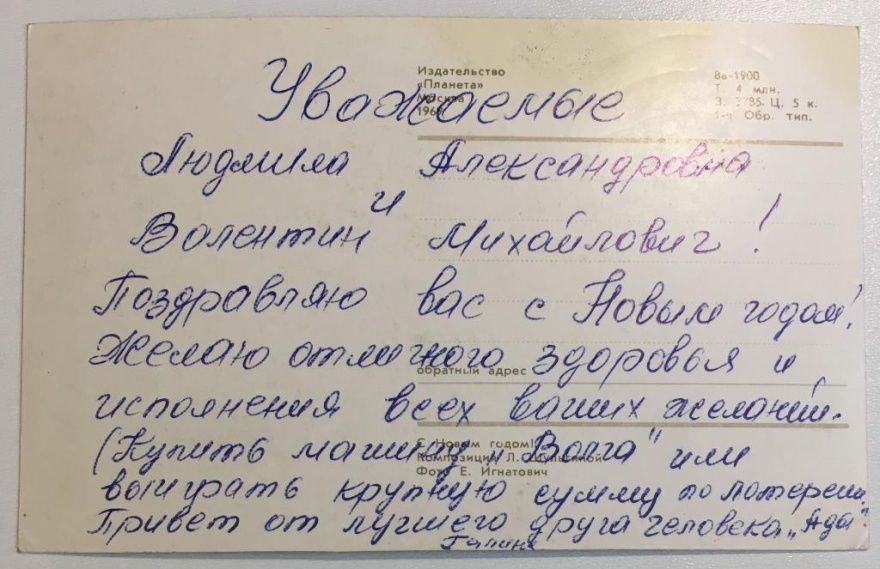 Издательство
«Планета»
Москва
1969
8в-1900
Т. 4 млн.
З. 3785. Ц. 5 к.
1-я Обр. тип.
Уважаемые
Людмила Александровна
и
Валентин Михайлович!
Поздравляю вас с Новым годом!
Желаю отличного здоровья и
обратный адрес
исполнения всех ваших желаний.
С Новым годом!
Композиция Л. Шульгиной
Фото Е. Игнатович
(Купить машину „Волга" или
выиграть крупную сумму по лотереи
Привет от лучшего друга человека „Ады"
Галина